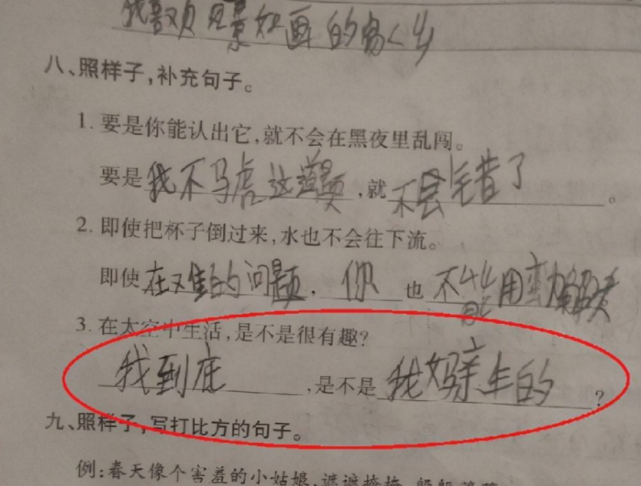 我喜欢风景如画的家乡
八、照样子，补充句子。
1. 要是你能认出它，就不会在黑夜里乱闯。
要是我不马虎这道题，就不会错了。
2. 即使把杯子倒过来，水也不会往下流。
即使在难的问题，你也不能用蛮力解决
3. 在太空中生活，是不是很有趣？
我到底，是不是我妈亲生的？
九、照样子，写打比方的句子。
例：春天像个害羞的小姑娘，遮遮掩掩，躲躲藏藏